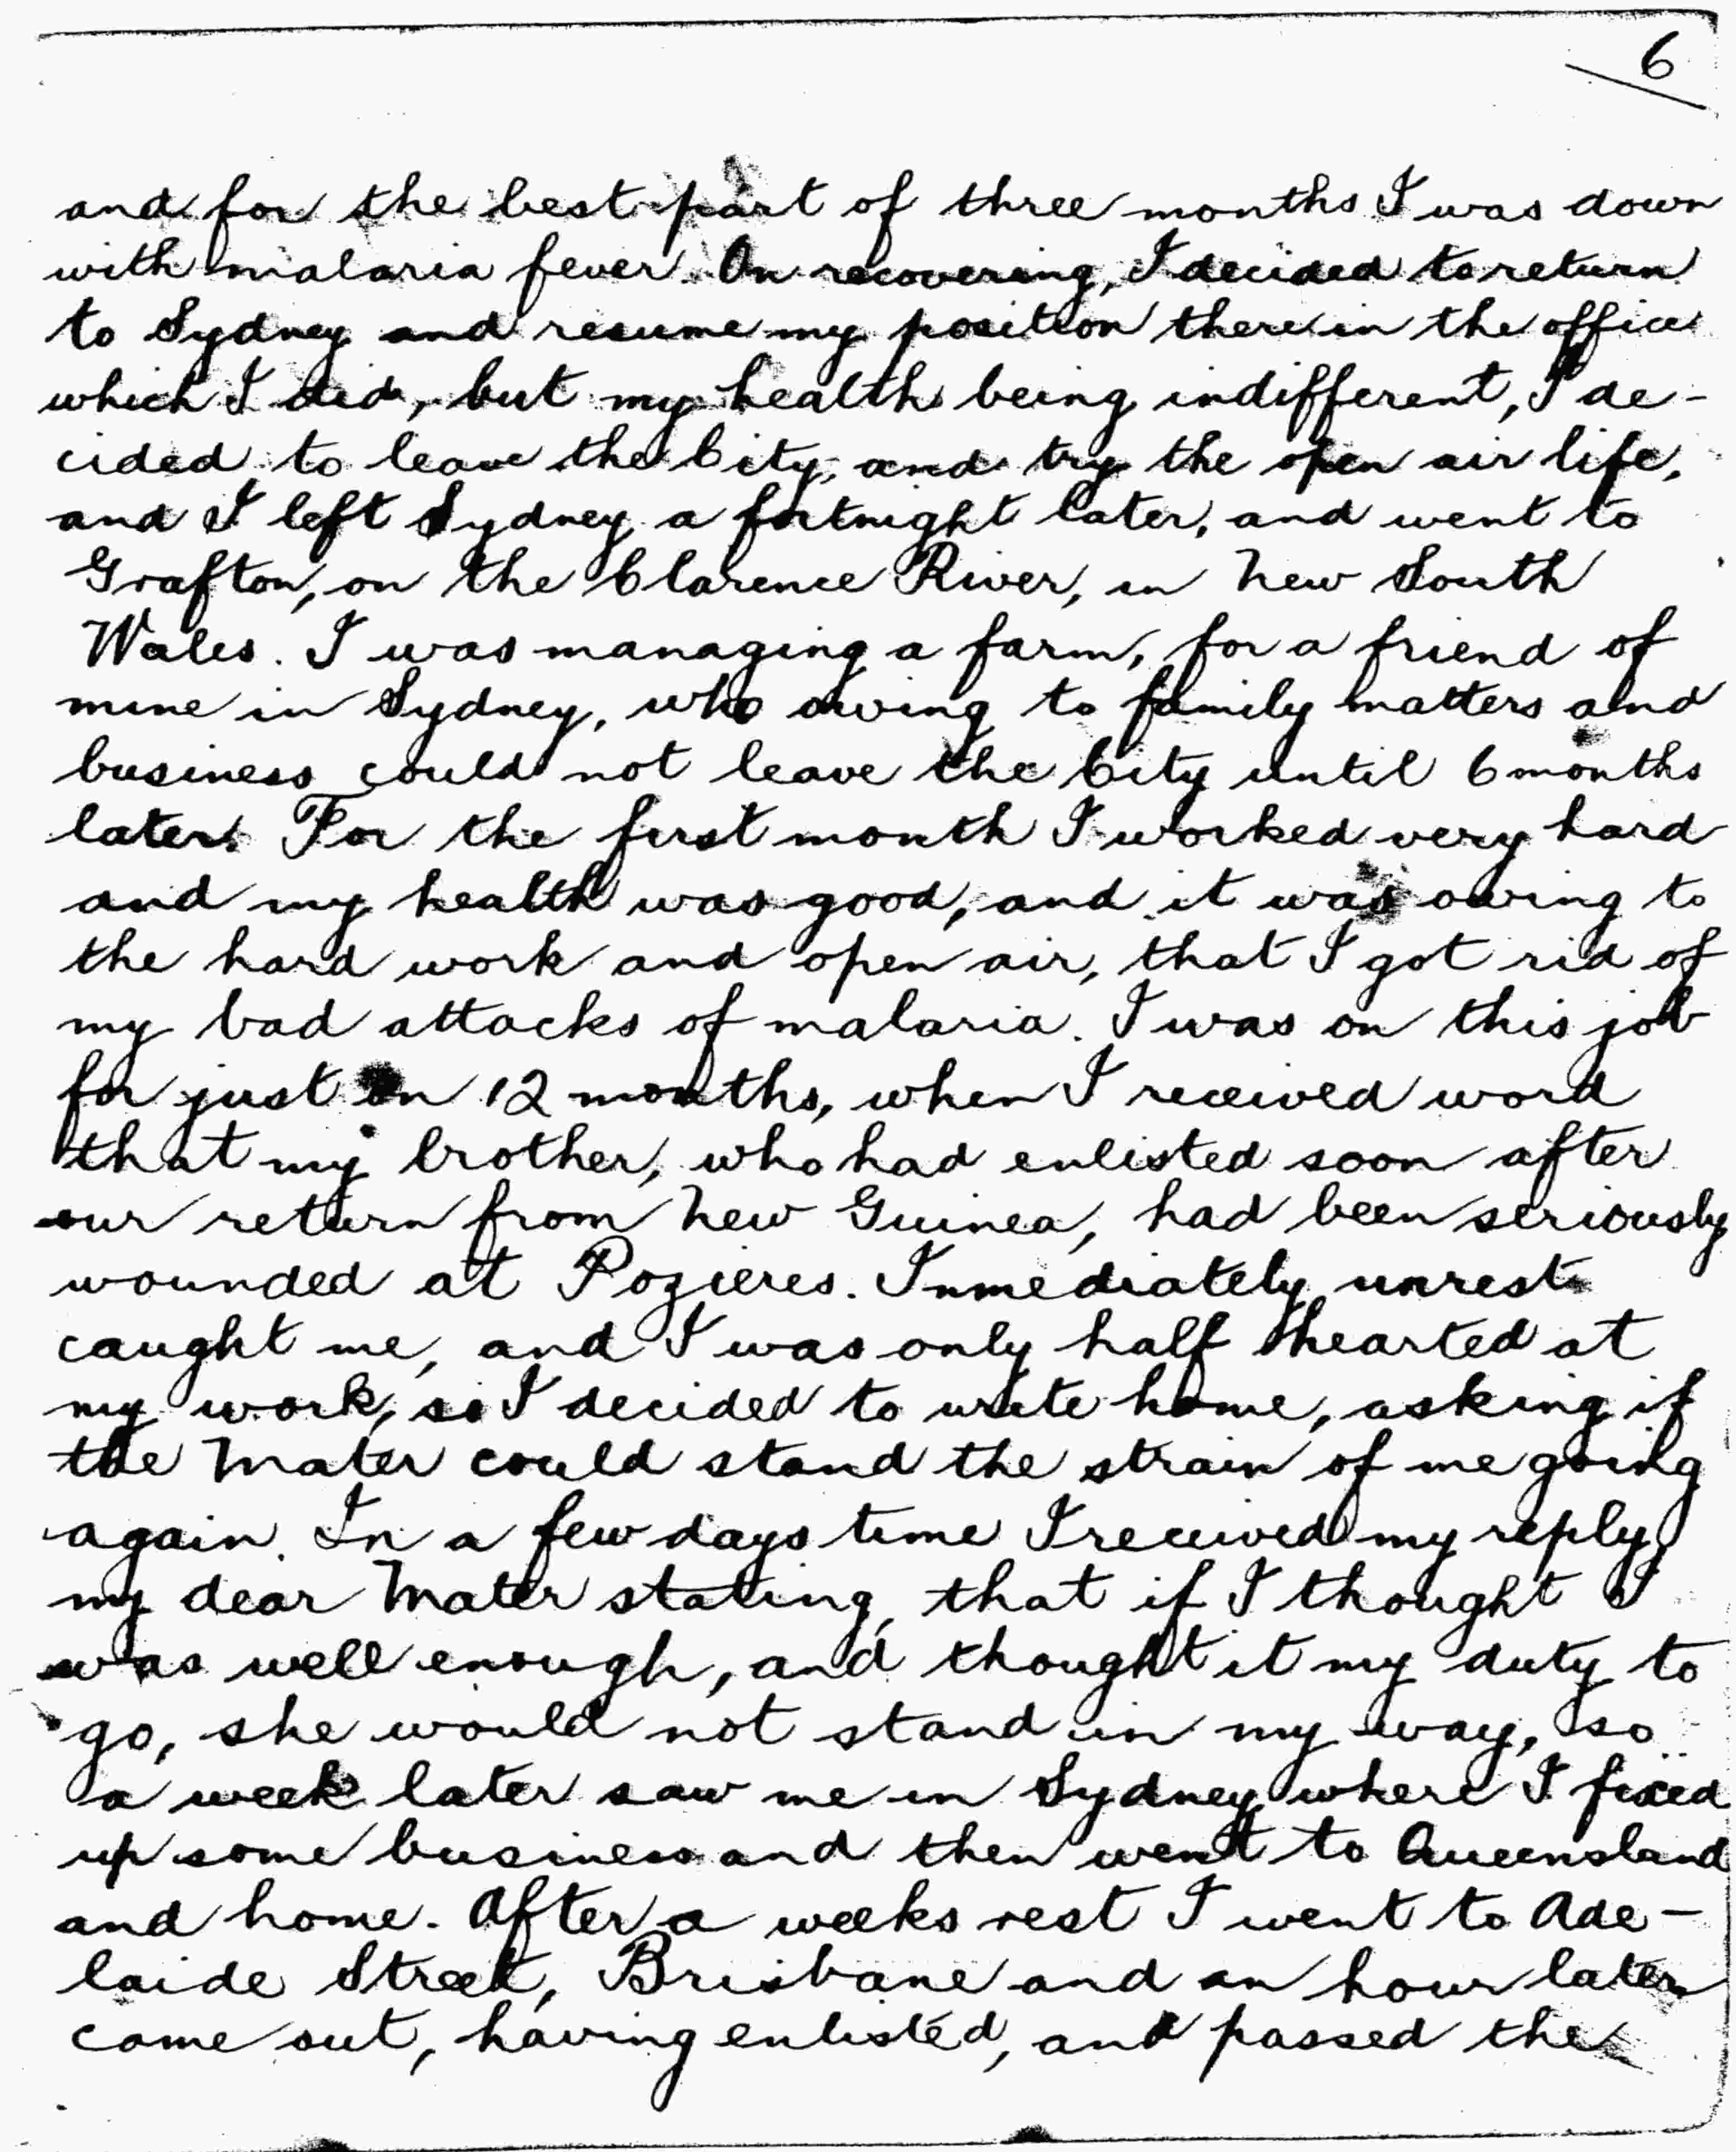 6
and for the best part of three months I was down
with malaria fever. On recovering, I decided to return
to Sydney and resume my position there in the office
which I did, but my health being indifferent, I de-
cided to leave the City, and try the open air life,
and I left Sydney a fortnight later, and went to
Grafton, on the Clarence River, in New South
Wales. I was managing a farm, for a friend of
mine in Sydney, who owing to family matters and
business could not leave the City until 6 months
later. For the first month I worked very hard
and my health was good, and it was owing to
the hard work and open air, that I got rid of
my bad attacks of malaria. I was on this job
for just on 12 months, when I received word
that my brother, who had enlisted soon after
our return from New Guinea, had been seriously
wounded at Pozieres. Immediately unrest
caught me, and I was only half hearted at
my work, so I decided to write home, asking if
the Mater could stand the strain of me going
again. In a few days time I received my reply,
my dear Mater stating, that if I thought I
was well enough, and thought it my duty to
go, she would not stand in my way, so
a week later saw me in Sydney where I fixed
up some business and then went to Queensland
and home. After a weeks rest I went to Ade-
laide Street, Brisbane and an hour later
came out, having enlisted, and passed the